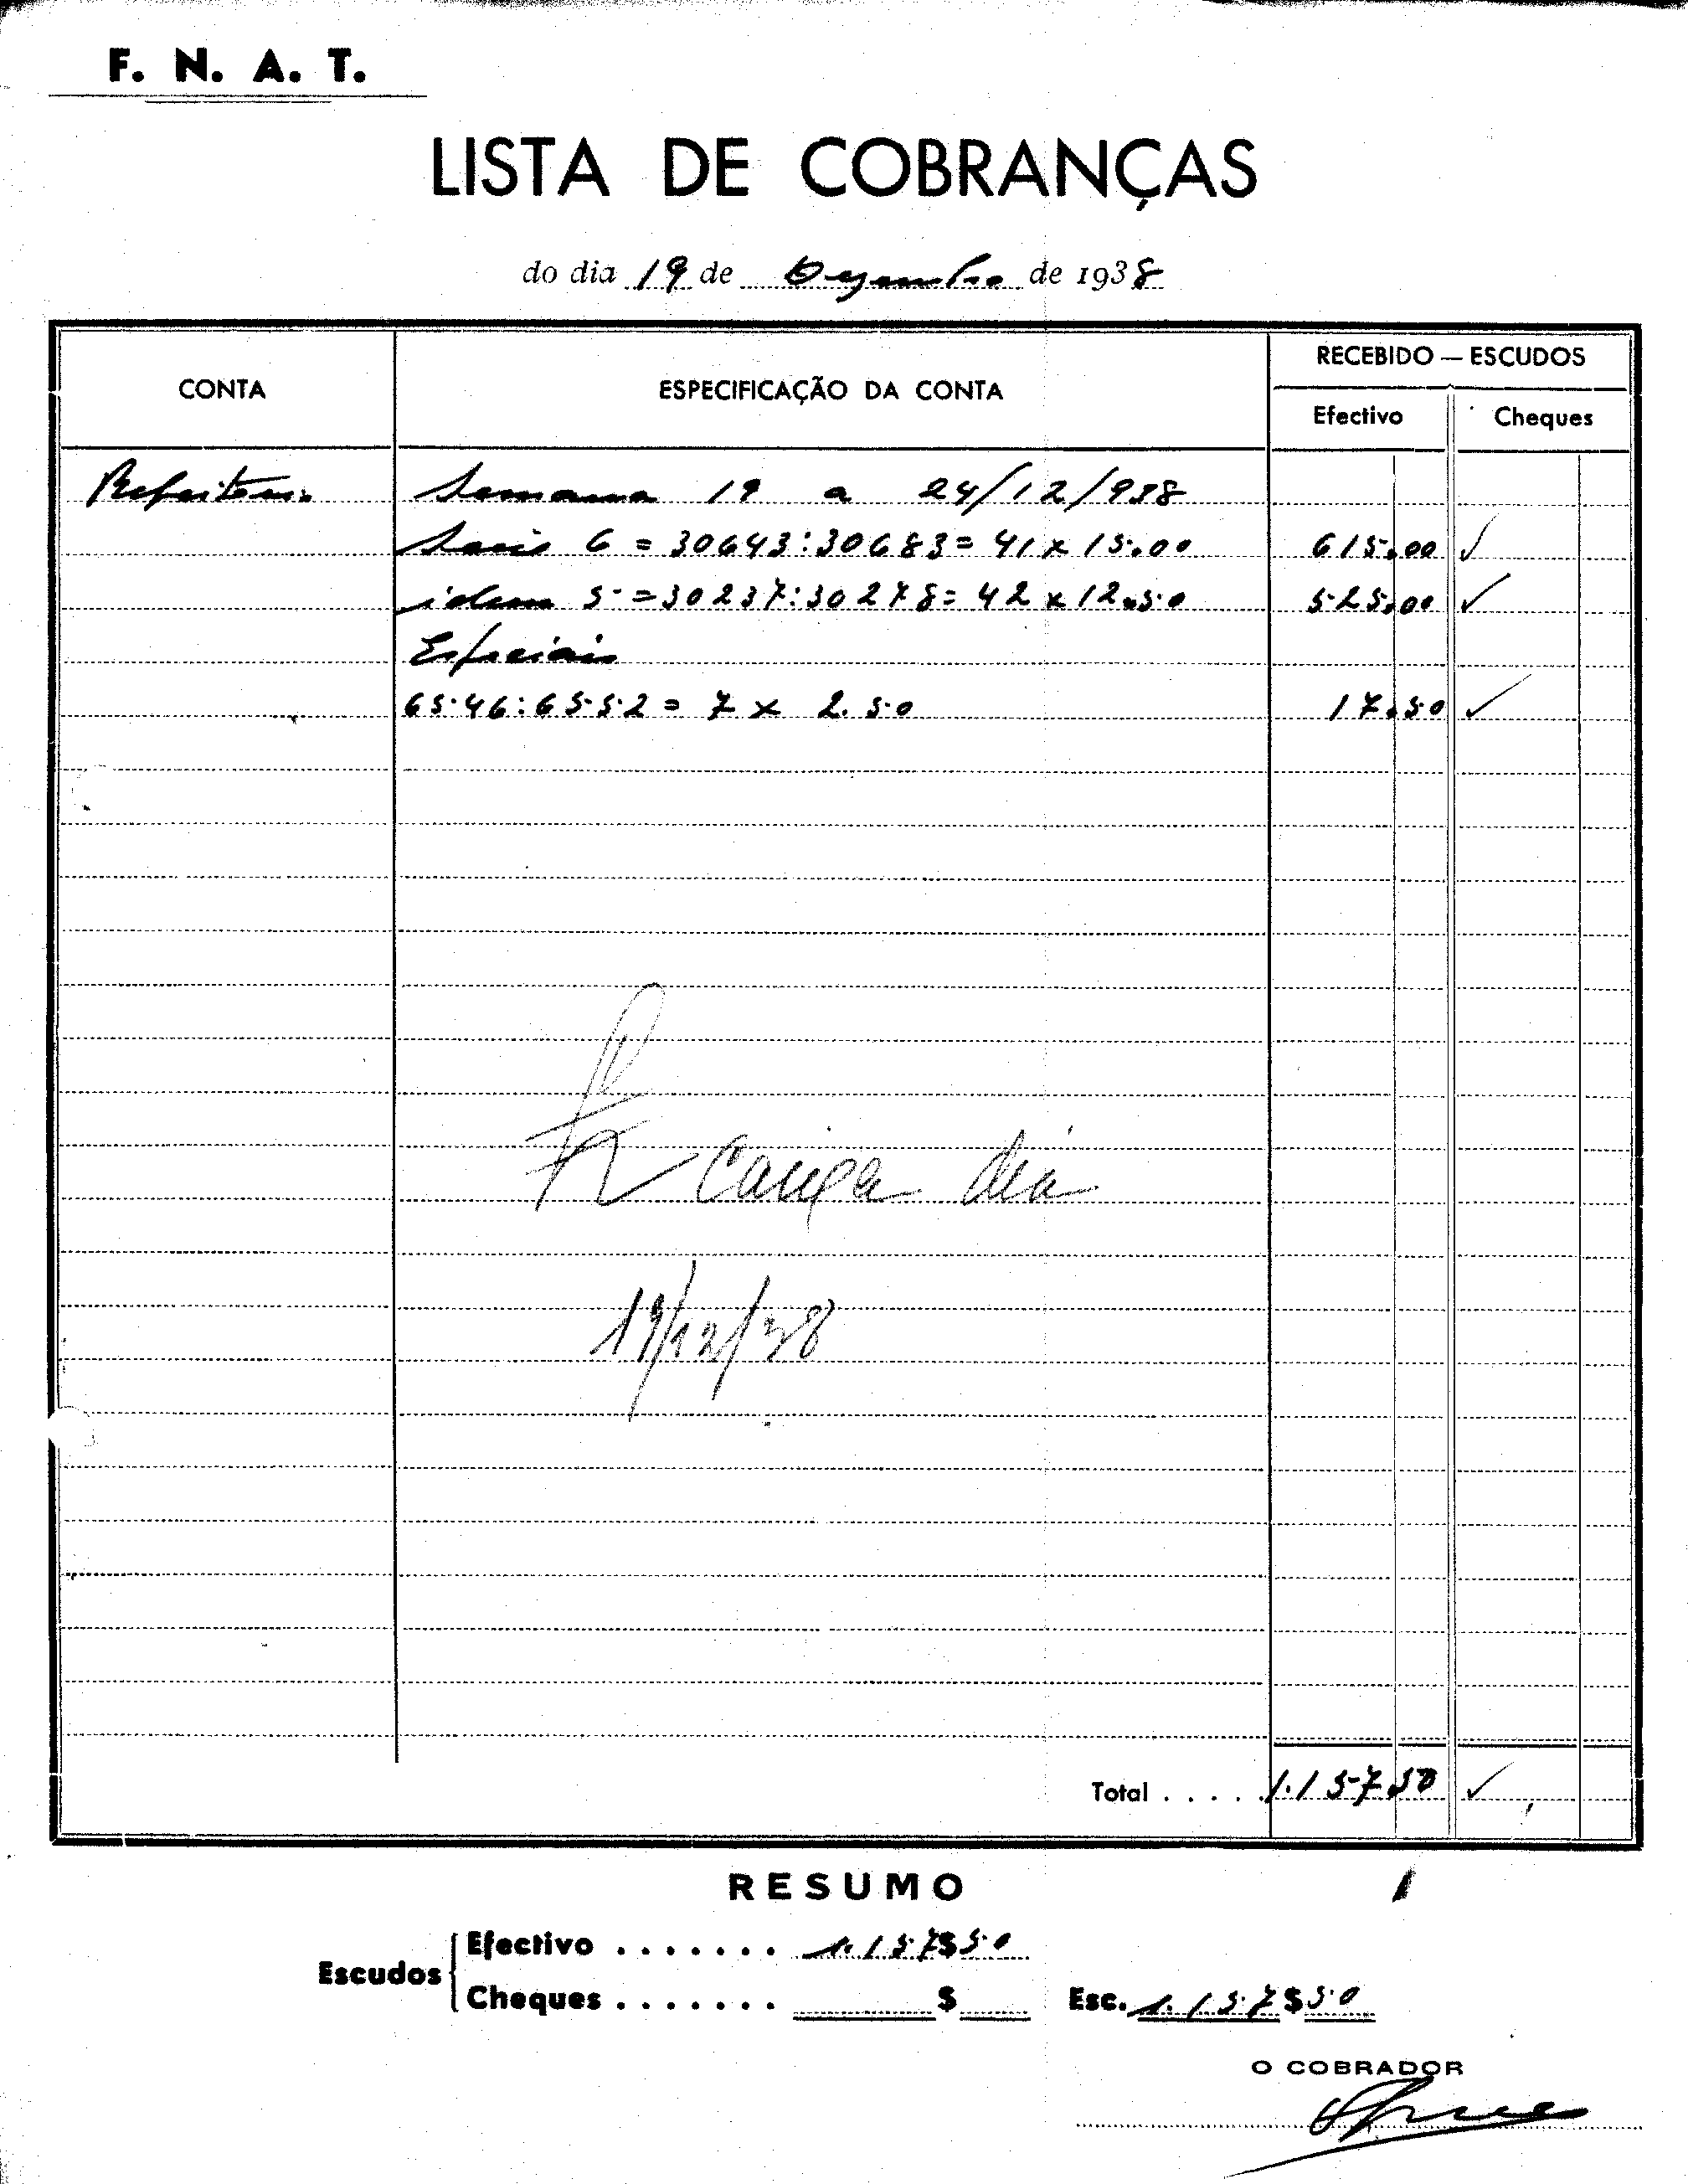 F. N. A. T.
LISTA DE COBRANÇAS
do dia 19 de Dezembro de 1938
CONTA
ESPECIFICAÇÃO DA CONTA
RECEBIDO — ESCUDOS
Efectivo
Cheques
Refeitorio Semana 19 a 24/12/938
Series 6 = 30643:30683 = 41 x 15.00 615.00 ✓
idem 5 = 30237:30278 = 42 x 12.50 525.00 ✓
Especiais
6546:6552 = 7 x 2.50 17.50 ✓
caixa dia
19/12/38
Total . . . . . 1.157.50 ✓
RESUMO
Escudos
Efectivo . . . . . . . 1.157$50
Cheques . . . . . . . $
Esc. 1.157$50
O COBRADOR